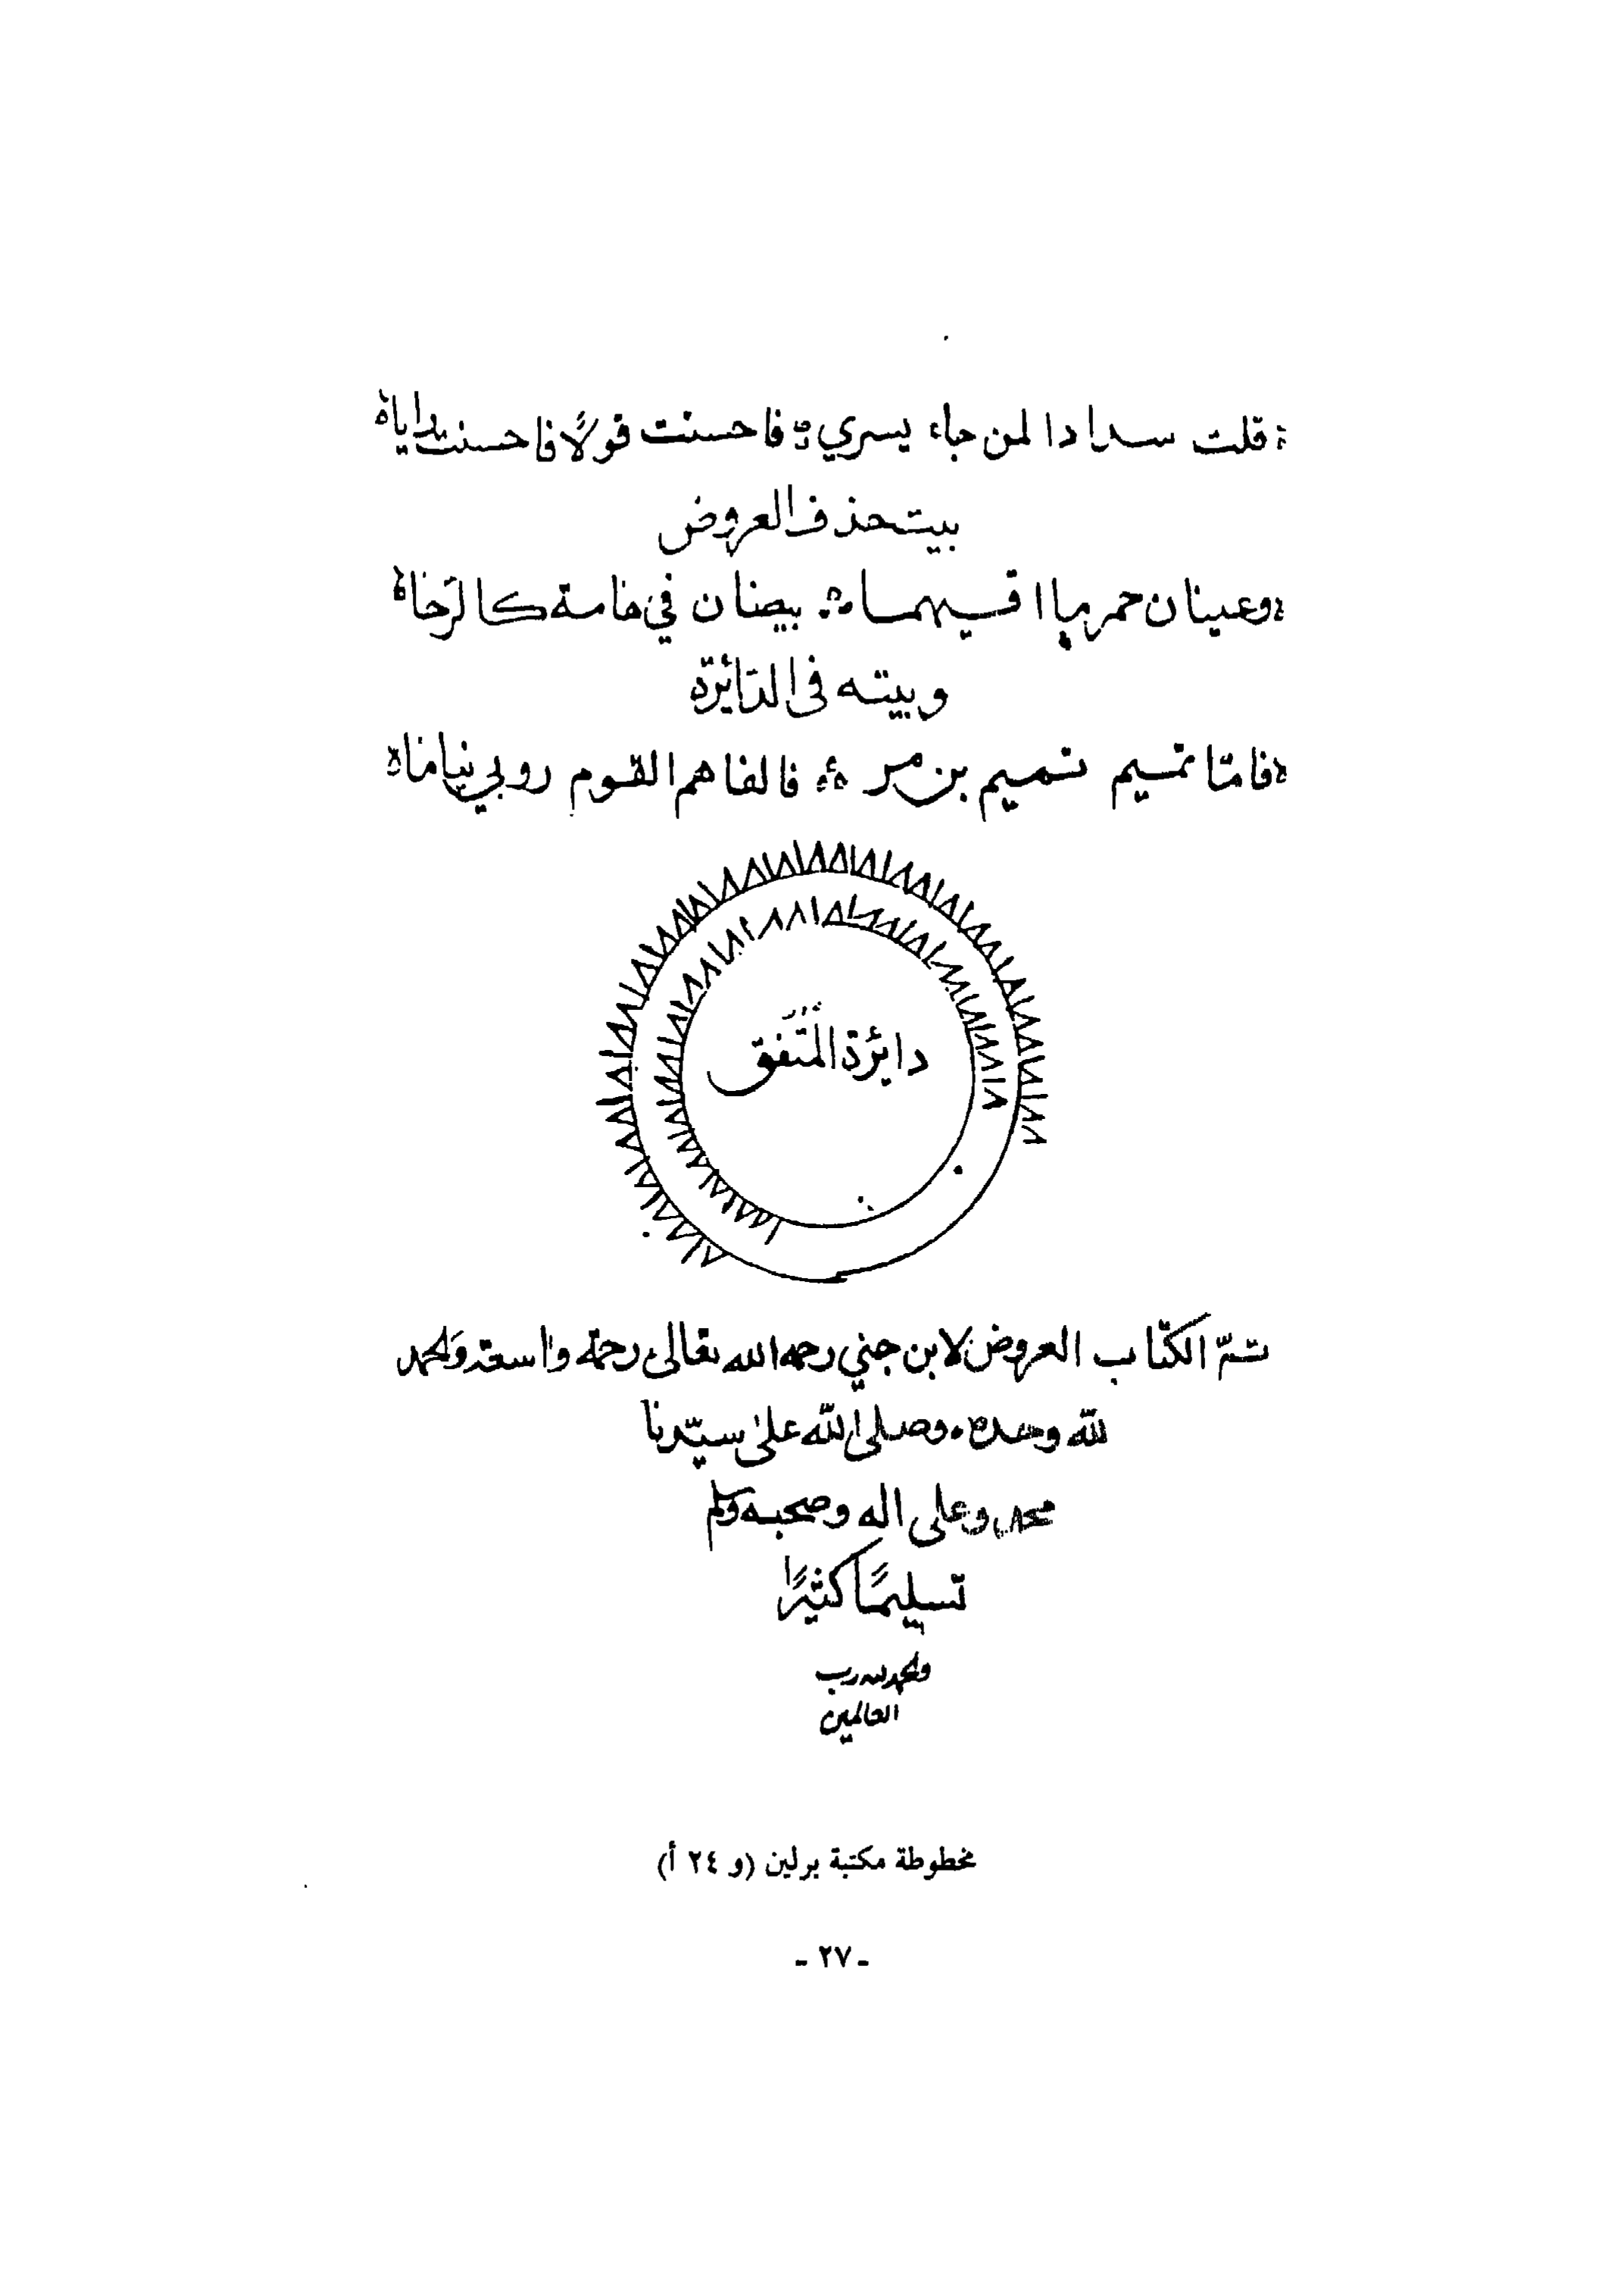 قلت سدادا لمن جاء يسري فاحسنت قولًا فاحسنت رايا
بيت حذف العروض
وعينان حمر مآقيهما بيصنان في هامة كالرحا
وبيته في الدّائرة
فامّا تميم تميم بن مر فالفاهم القوم روبي نياما
دايرة المتّفق
تمّ الكتاب العروض لابن جني رحمه الله تعالى رحمة واسعة والحمد
لله وحده وصلى الله على سيّدنا
محمد وعلى اله وصحبه وسلم
تسليمًا كثيرًا
والحمد لله رب
العالمين
مخطوطة مكتبة برلين (و ٢٤ أ)
ـ ٢٧ ـ